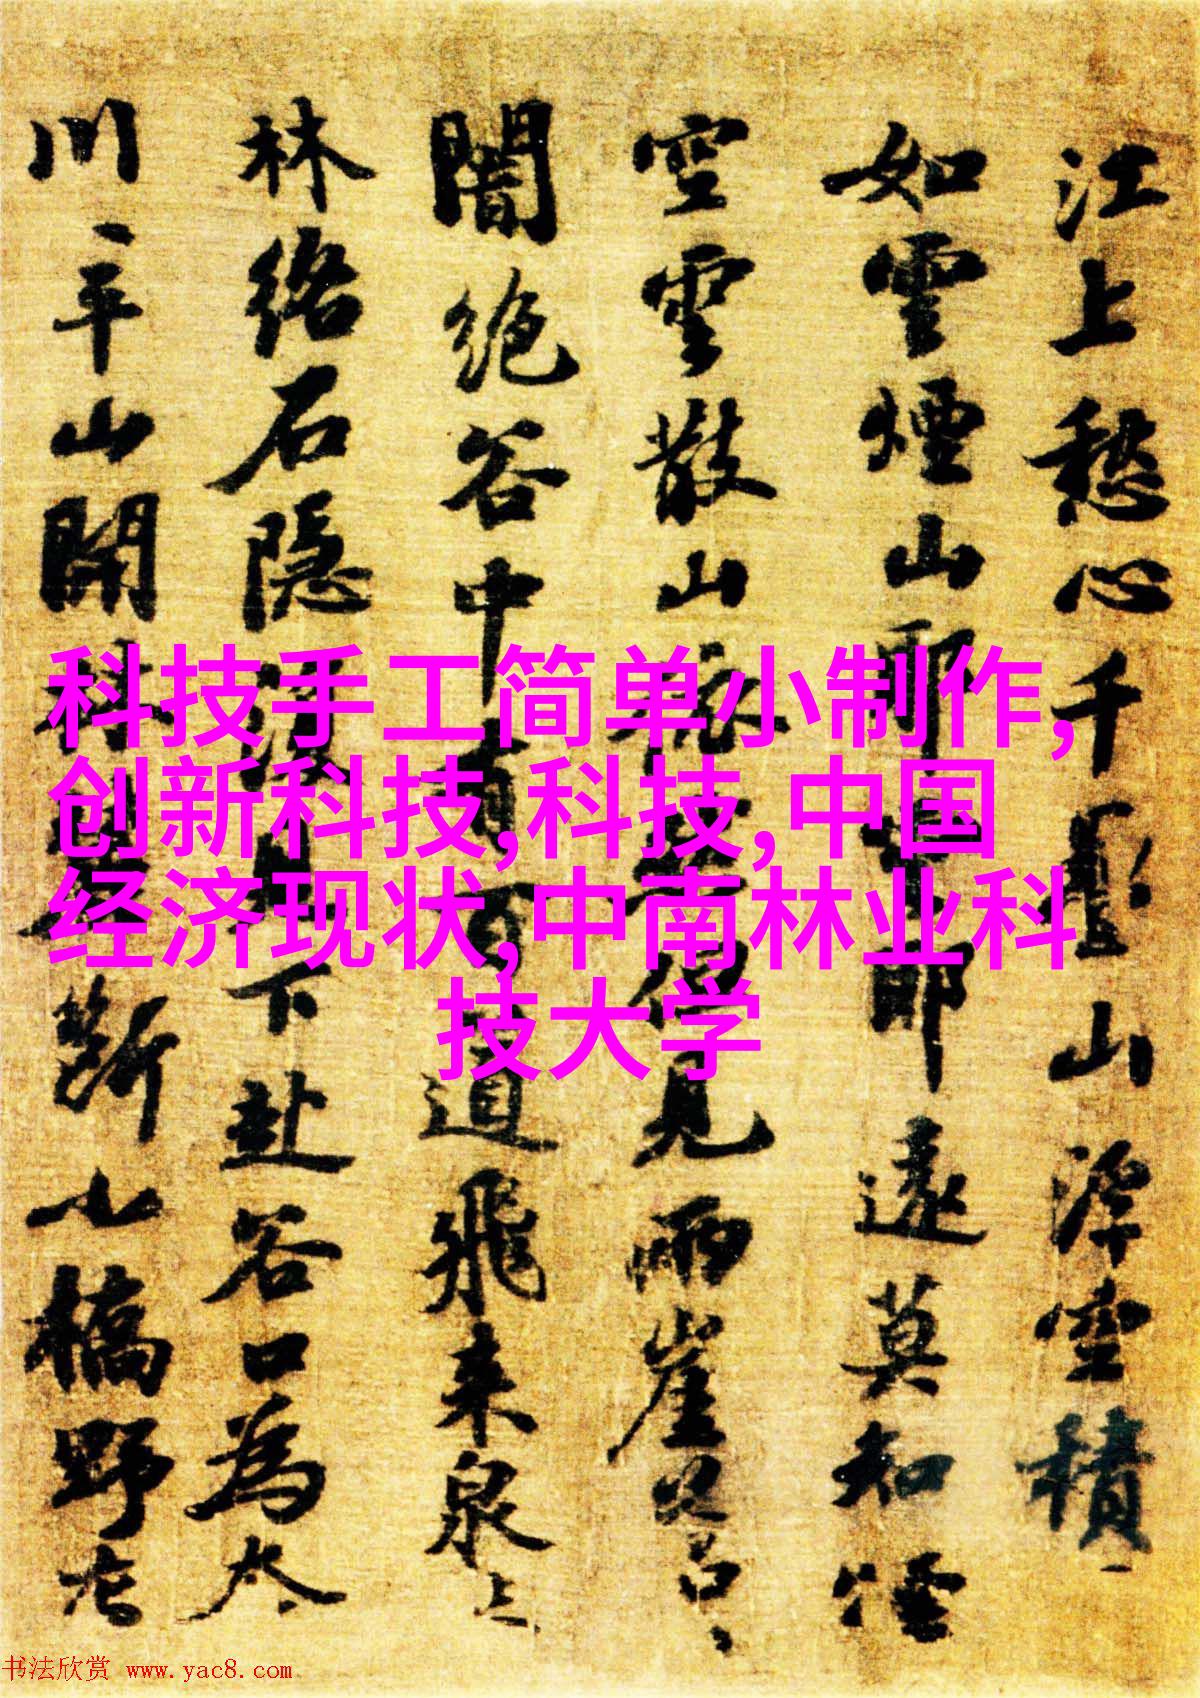 江上愁心千疊山浮空積
如雲煙山耶雲耶遠莫知煙
空雲散山依然但見兩崖
闇絶谷中有百道飛来泉
林絡石隱見下赴谷口為
川平山開林斷小橋野
科技手工简单小制作,
创新科技,科技,中国
经济现状,中南林业科
技大学
书法欣赏 www.yac8.com